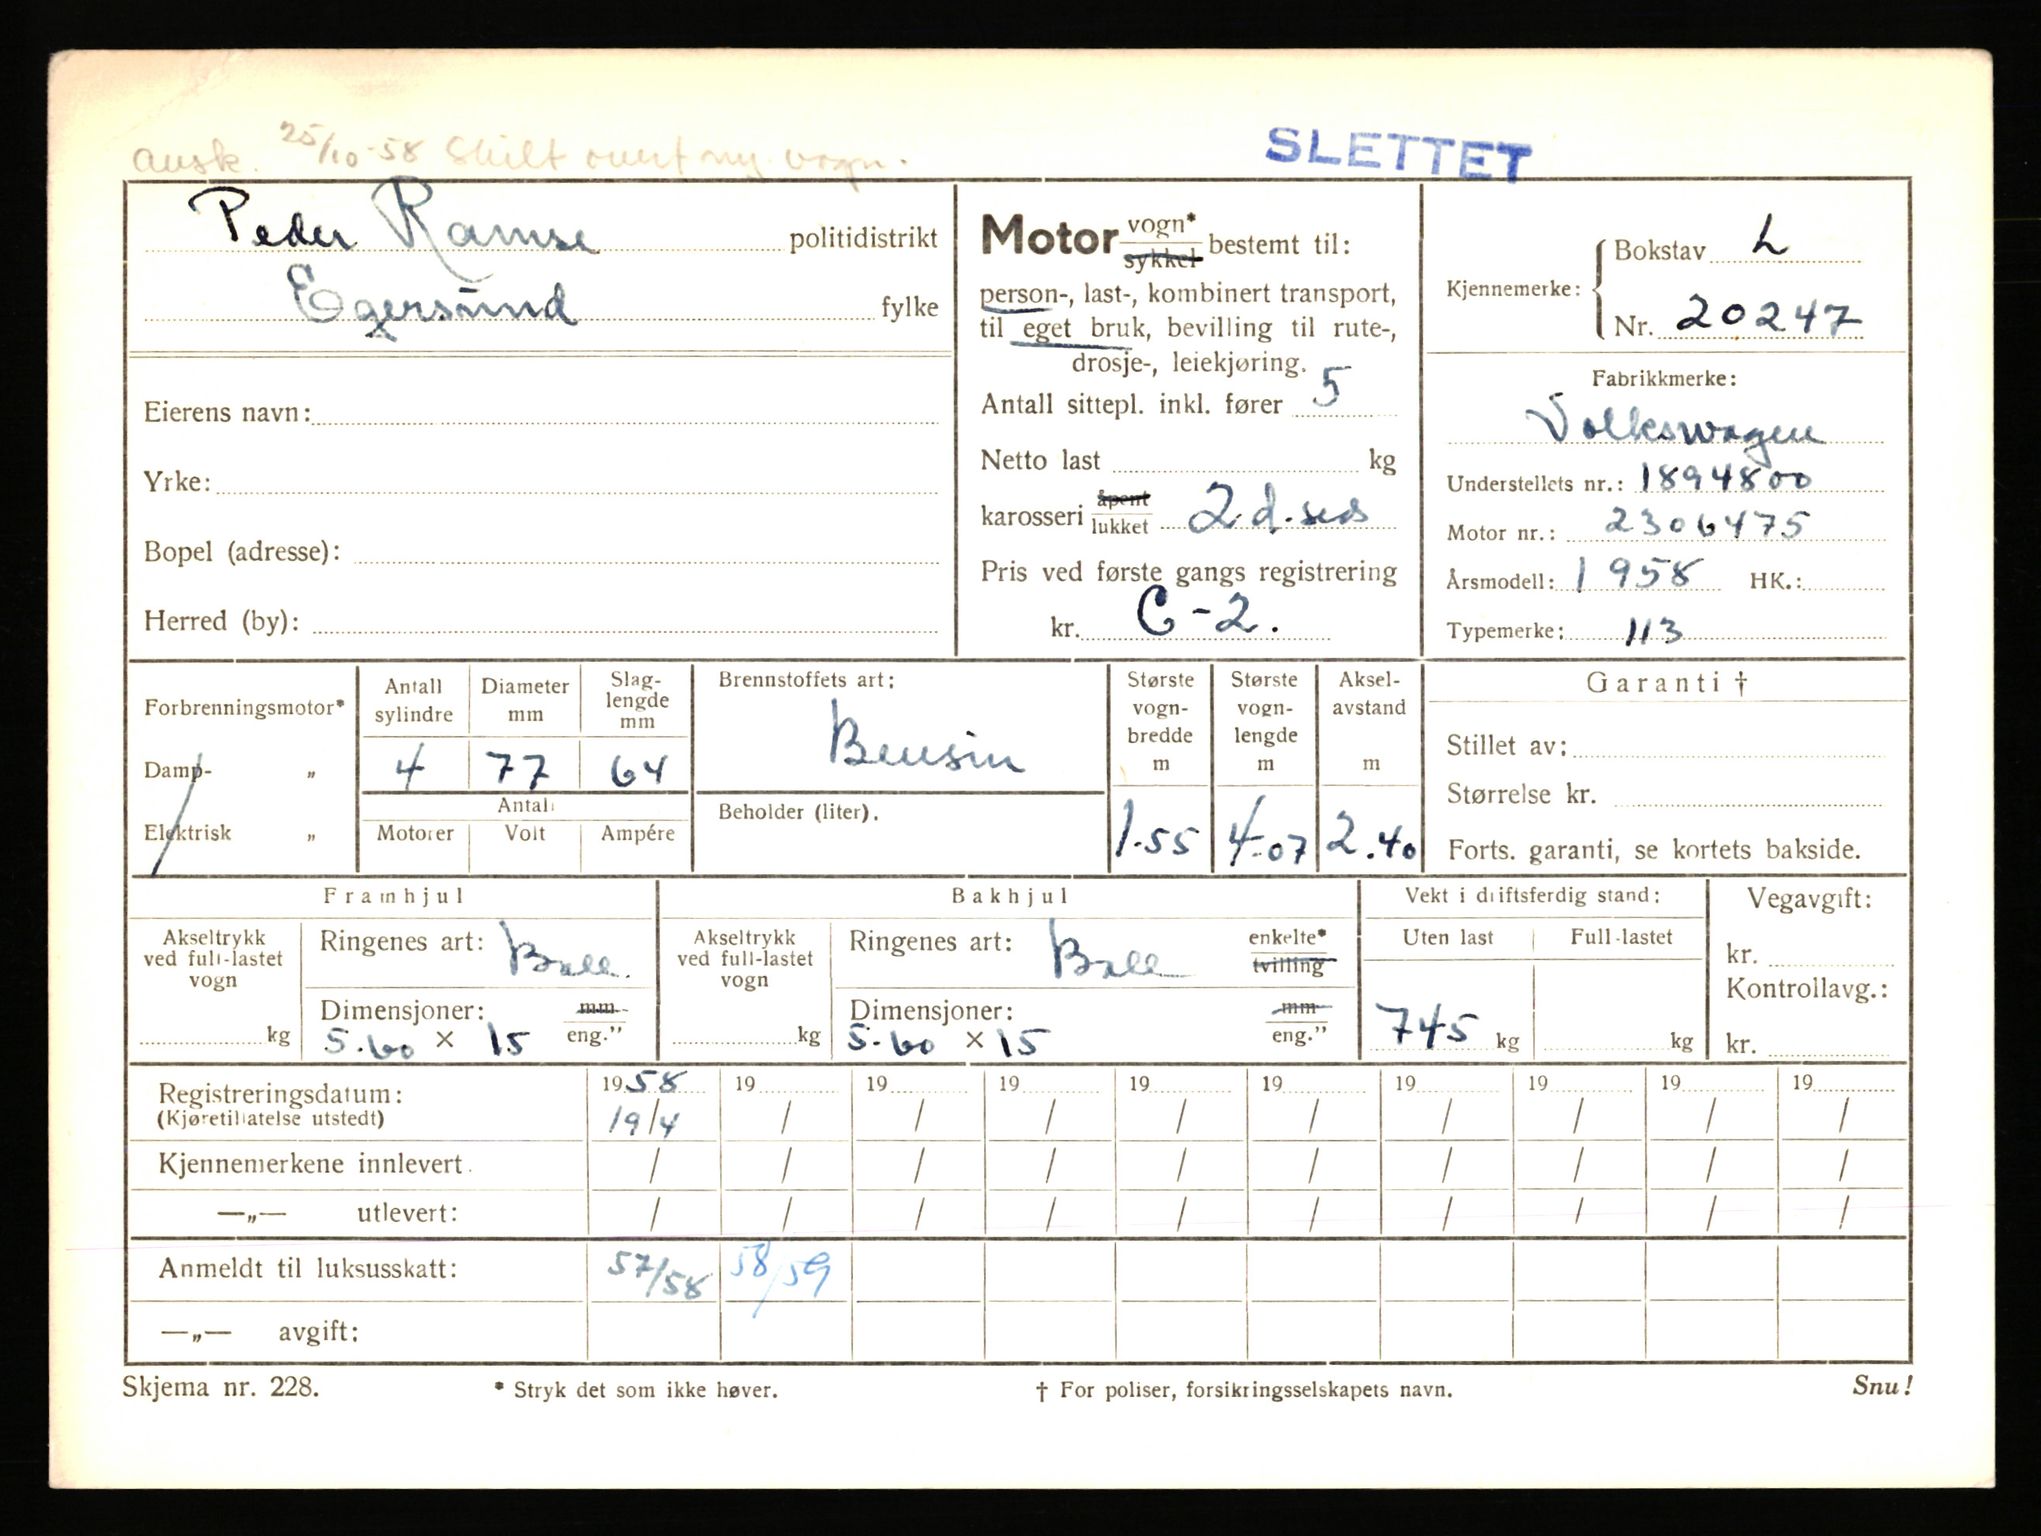 ansk. 25/10-58 Skilt overf ny vogn.
SLETTET
Peder Ramse politidistrikt
Egersund fylke
Eierens navn:
Yrke:
Bopel (adresse):
Herred (by):
Motor vogn* sykkel bestemt til:
person-, last-, kombinert transport,
til eget bruk, bevilling til rute-,
drosje-, leiekjøring.
Antall sittepl. inkl. fører 5
Netto last kg
karosseri åpent lukket 2 d. sed
Pris ved første gangs registrering
kr. C-2.
Kjennemerke: Bokstav L
Nr. 20247
Fabrikkmerke:
Volkswagen
Understellets nr.: 1894800
Motor nr.: 2306475
Årsmodell: 1958 HK.:
Typemerke: 113
Forbrenningsmotor*
Damp- „
Elektrisk „
Antall sylindre Diameter mm Slag-lengde mm
4 77 64
Antall
Motorer Volt Ampére
Brennstoffets art:
Bensin
Beholder (liter).
Største vogn-bredde m Største vogn-lengde m Aksel-avstand m
1.55 4.07 2.40
Garanti †
Stillet av:
Størrelse kr.
Forts. garanti, se kortets bakside.
Framhjul
Akseltrykk ved full-lastet vogn
kg
Ringenes art: Ball.
Dimensjoner: mm eng."
5.60 × 15
Bakhjul
Akseltrykk ved full-lastet vogn
kg
Ringenes art: Ball enkelte* tvilling
Dimensjoner: mm eng."
5.60 × 15
Vekt i driftsferdig stand:
Uten last Full-lastet
745 kg kg
Vegavgift:
kr.
Kontrollavg.:
kr.
Registreringsdatum: 1958 19 19 19 19 19 19 19 19 19
(Kjøretillatelse utstedt) 19/4 / / / / / / / / /
Kjennemerkene innlevert. / / / / / / / / / /
—„— utlevert: / / / / / / / / / /
Anmeldt til luksusskatt: 57/58 58/59
—„— avgift:
Skjema nr. 228. * Stryk det som ikke høver. † For poliser, forsikringsselskapets navn. Snu!